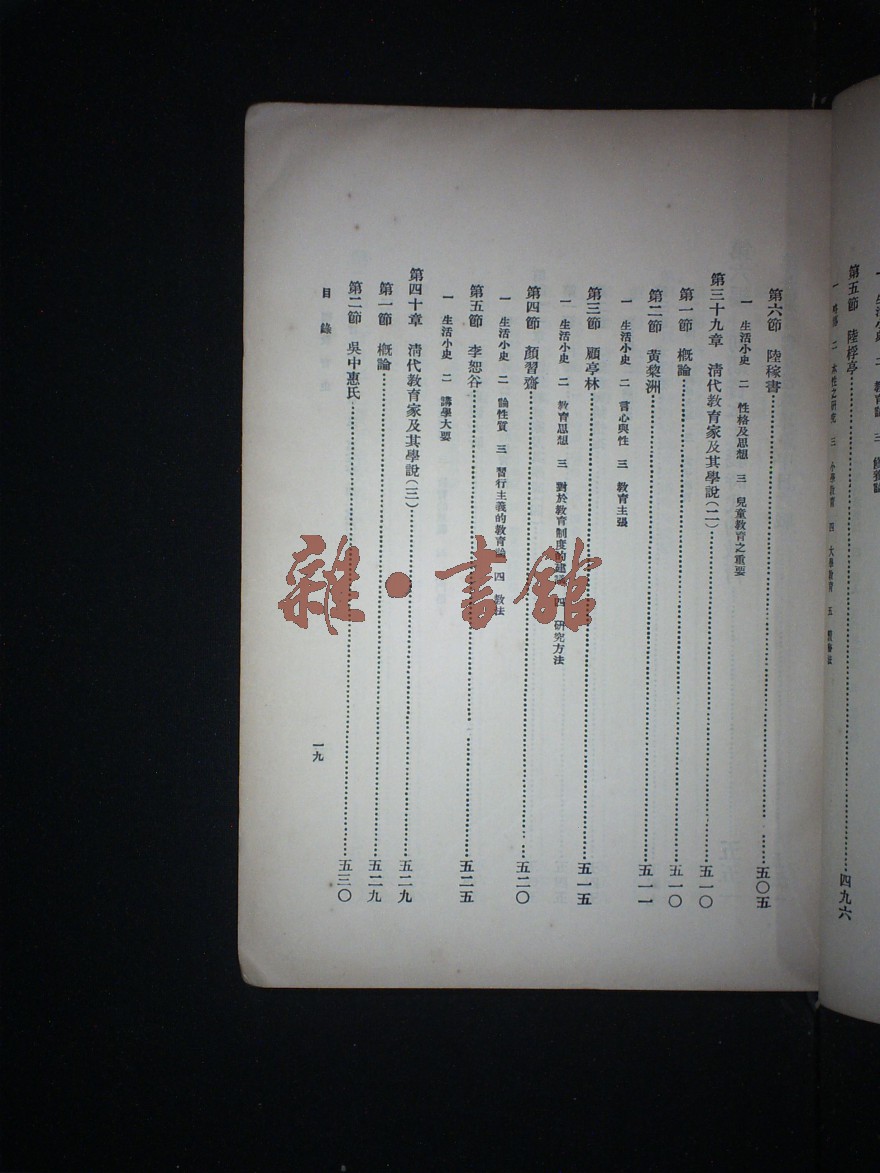 一 生活小史 二 教育論 三 修養論
第五節 陸桴亭……四九六
一 略傳 二 本性之研究 三 小學教育 四 大學教育 五
第六節 陸稼書……五〇五
一 生活小史 二 性格及思想 三 兒童教育之重要
第三十九章 清代教育家及其學說(二)……五一〇
第一節 概論……五一〇
第二節 黃黎洲……五一一
一 生活小史 二 言心與性 三 教育主張
第三節 顧亭林……五一五
一 生活小史 二 教育思想 三 對於教育制度的建議 四 研究方法
第四節 顏習齋……五二〇
一 生活小史 二 論性質 三 習行主義的教育論 四 教法
第五節 李恕谷……五二五
一 生活小史 二 講學大要
第四十章 清代教育家及其學說(三)……五二九
第一節 概論……五二九
第二節 吳中惠氏……五三〇
目錄
一九
雜·書館